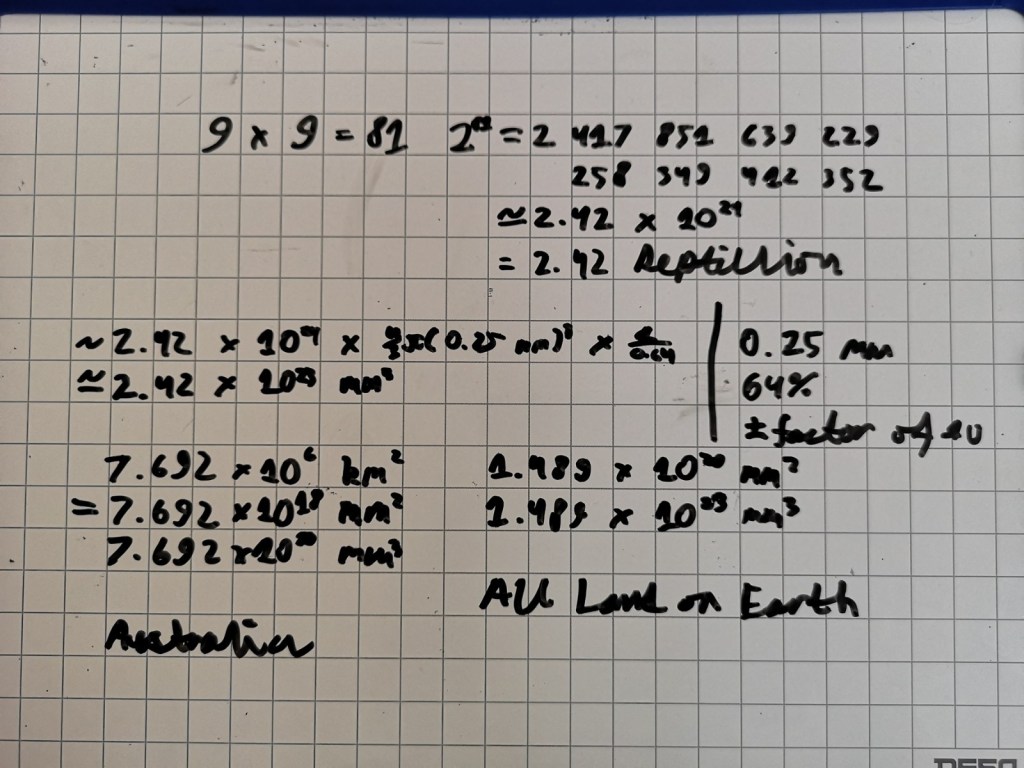 9 × 9 = 81 2⁸¹ = 2 417 851 639 229
258 349 412 352
≃ 2.42 × 10²⁴
= 2.42 Septillion
~ 2.42 × 10²⁴ × 4/3 π(0.25 mm)³ × 1/0.64
≃ 2.42 × 10²³ mm³
0.25 mm
64%
± factor of 10
7.692 × 10⁶ km²
= 7.692 × 10¹⁸ mm²
7.692 × 10²⁰ mm³
Australia
1.489 × 10²⁰ mm²
1.489 × 10²³ mm³
All Land on Earth